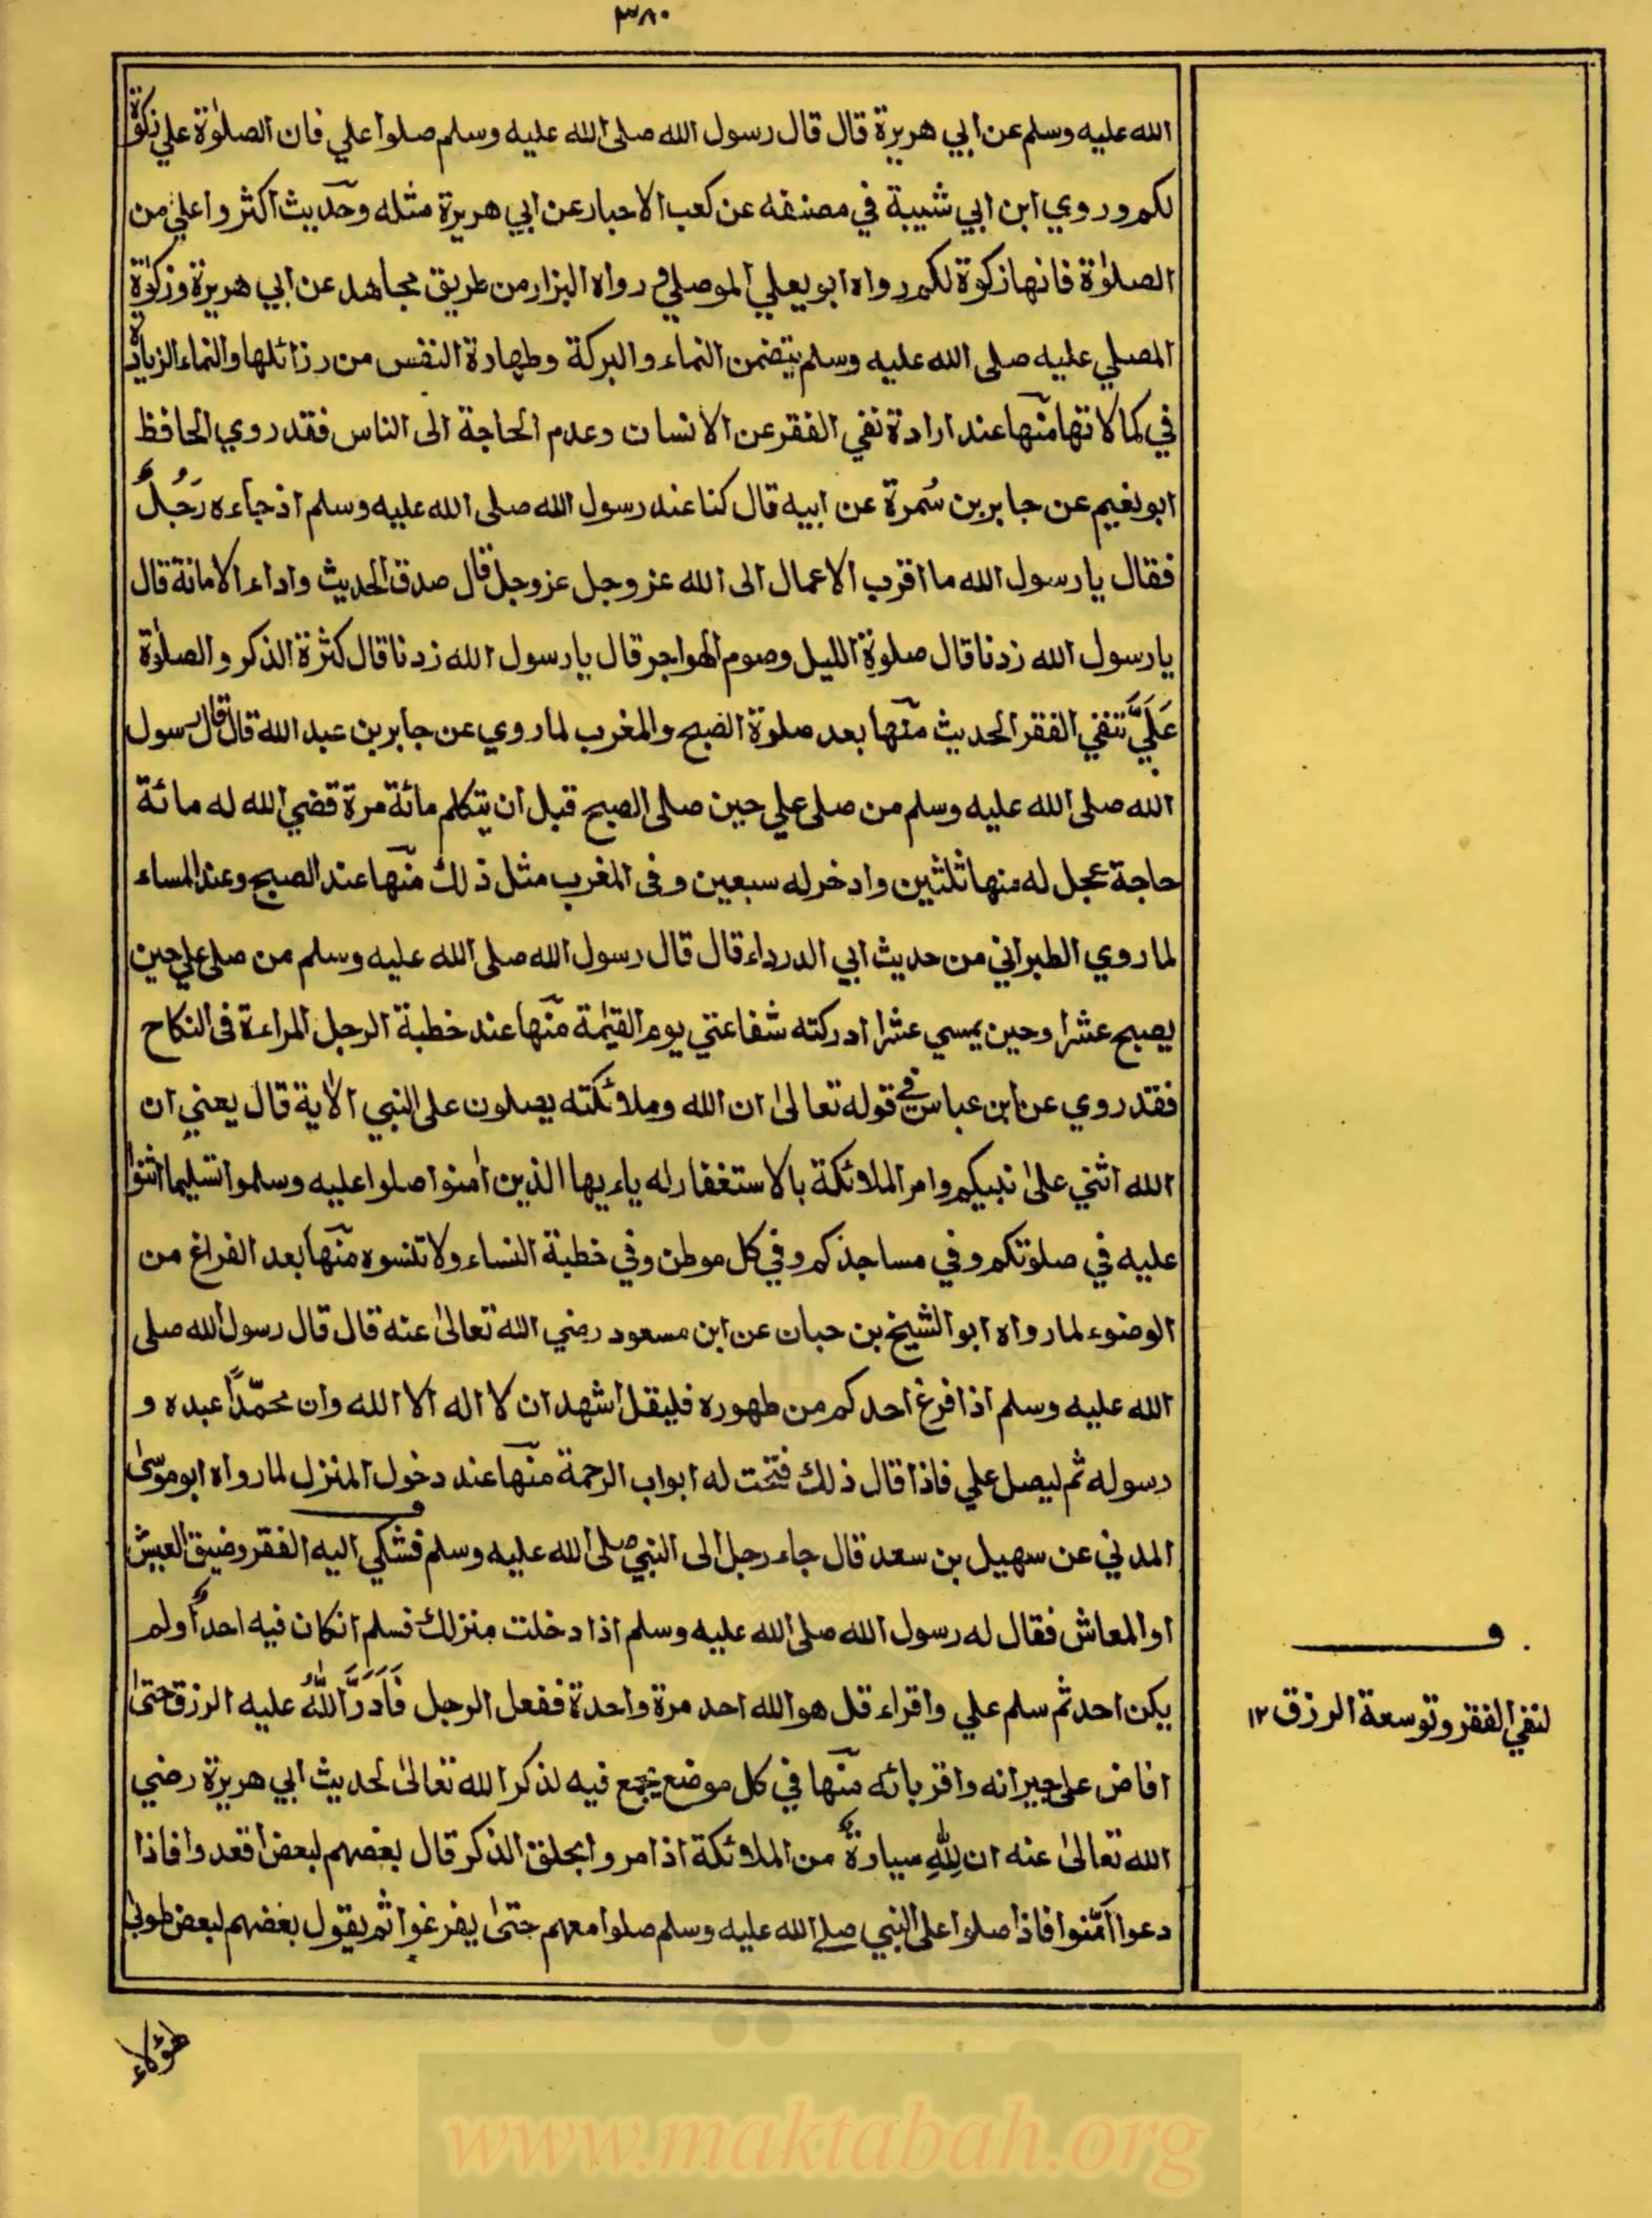 ٣٨٠
الله عليه وسلم عن ابي هريرة قال قال رسول الله صلى الله عليه وسلم صلوا علي فان الصلوٰة علي زكوٰة
لكم وروي ابن ابي شيبة في مصنفه عن كعب الاحبار عن ابي هريرة مثله وحديث اكثروا علي من
الصلوٰة فانها زكوة لكم رواه ابو يعلي الموصلي و رواه البزار من طريق مجاهد عن ابي هريرة وزكوٰة
المصلي عليه صلى الله عليه وسلم يتضمن النماء والبركة وطهارة النفس من رزائلها والنماء الزيادة
في كمالاتها منها عند ارادة نفي الفقر عن الانسان وعدم الحاجة الى الناس فقد روي الحافظ
ابو نعيم عن جابر بن سُمرة عن ابيه قال كنا عند رسول الله صلى الله عليه وسلم اذ جاءه رَجُلٌ
فقال يا رسول الله ما اقرب الاعمال الى الله عز وجل عز وجل قال صدق الحديث واداء الامانة قال
يا رسول الله زدنا قال صلوة الليل وصوم الهواجر قال يا رسول الله زدنا قال كثرة الذكر والصلوٰة
عَلَيَّ تنفي الفقر الحديث منها بعد صلوة الصبح والمغرب لما روي عن جابر بن عبد الله قال قال رسول
الله صلى الله عليه وسلم من صلى علي حين صلى الصبح قبل ان يتكلم مائة مرة قضي الله له مائة
حاجة عجل له منها ثلثين وادخر له سبعين وفى المغرب مثل ذلك منها عند الصبح وعند المساء
لما روي الطبراني من حديث ابي الدرداء قال قال رسول الله صلى الله عليه وسلم من صلى علي حين
يصبح عشرا وحين يمسي عشرا ادركته شفاعتي يوم القيٰمة منها عند خطبة الرجل المراءة فى النكاح
فقد روي عن ابن عباس في قوله تعالىٰ ان الله وملائكته يصلون على النبي الاٰية قال يعني ان
الله اثني علىٰ نبيكم وامر الملائكة بالاستغفار له ياءيها الذين اٰمنوا صلوا عليه وسلموا تسليما اثنوا
عليه في صلوتكم وفي مساجدكم وفي كل موطن وفي خطبة النساء ولا تنسوه منها بعد الفراغ من
الوضوء لما رواه ابو الشيخ بن حبان عن ابن مسعود رضي الله تعالىٰ عنه قال قال رسول الله صلى
الله عليه وسلم اذا فرغ احدكم من طهوره فليقل اشهد ان لا اله الا الله وان محمّدًا عبده و
رسوله ثم ليصل علي فاذا قال ذلك فتحت له ابواب الرحمة منها عند دخول المنزل لما رواه ابو موسىٰ
المدني عن سهيل بن سعد قال جاء رجل الى النبي صلى الله عليه وسلم فشكي اليه الفقر وضيق العيش
او المعاش فقال له رسول الله صلى الله عليه وسلم اذا دخلت منزلك فسلم انكان فيه احدٌ او لم
يكن احد ثم سلم علي واقراء قل هو الله احد مرة واحدة ففعل الرجل فَاَدَرَّ اللّٰهُ عليه الرزق حتىٰ
افاض على جيرانه واقربائه منها في كل موضع يجمع فيه لذكر الله تعالىٰ لحديث ابي هريرة رضي
الله تعالىٰ عنه ان لِلّٰهِ سيارةً من الملائكة اذا مروا بحلق الذكر قال بعضهم لبعض اقعدوا فاذا
دعوا اَمّنوا فاذا صلوا على النبي صلى الله عليه وسلم صلوا معهم حتىٰ يفرغوا ثم يقول بعضهم لبعض طوبىٰ
هٰؤلاء
ف
لنفي الفقر وتوسعة الرزق ١٢
www.maktabah.org